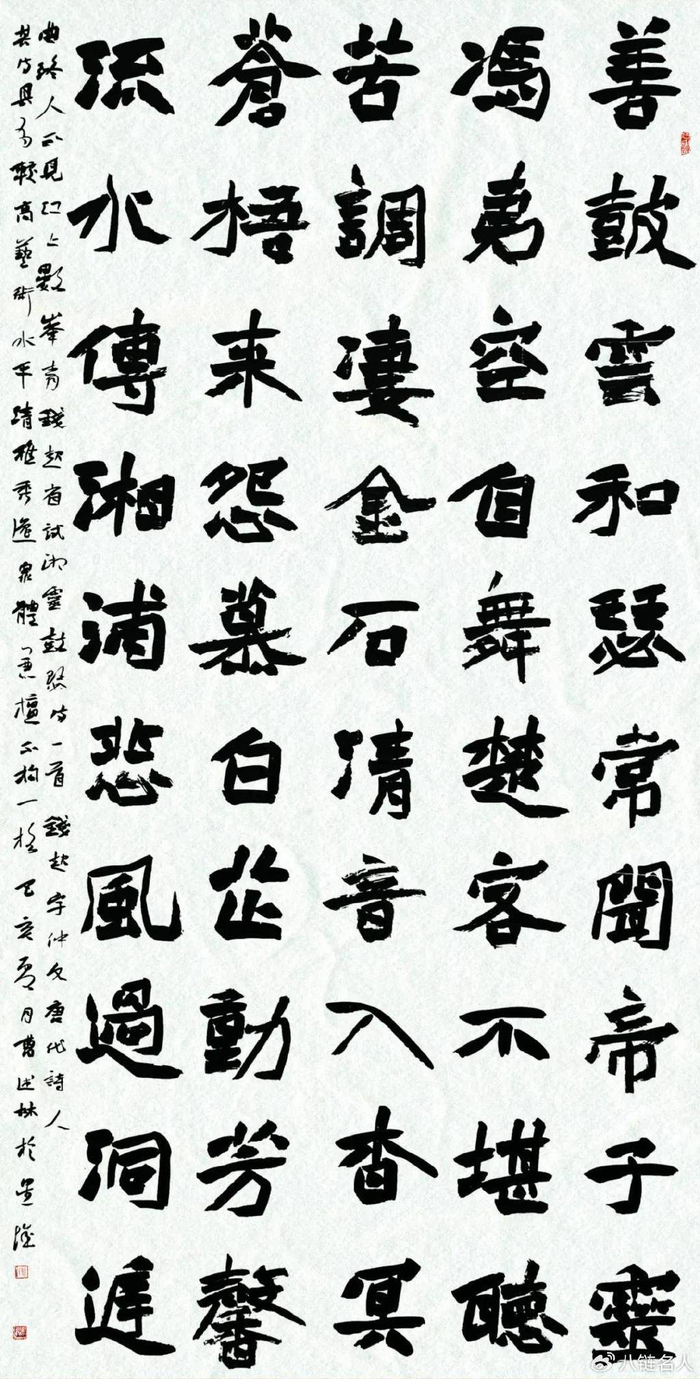 善鼓雲和瑟常聞帝子靈
馮夷空自舞楚客不堪聽
苦調凄金石清音入杳冥
蒼梧来怨慕白芷動芳馨
流水傳湘浦悲風過洞庭
曲終人不見江上數峯青錢起省試湘靈鼓瑟詩一首錢起字仲文唐代詩人
其詩具有較高藝術水平清雅秀逸衆體兼擅不拘一格己亥夏月曹述林於墨
八链名人